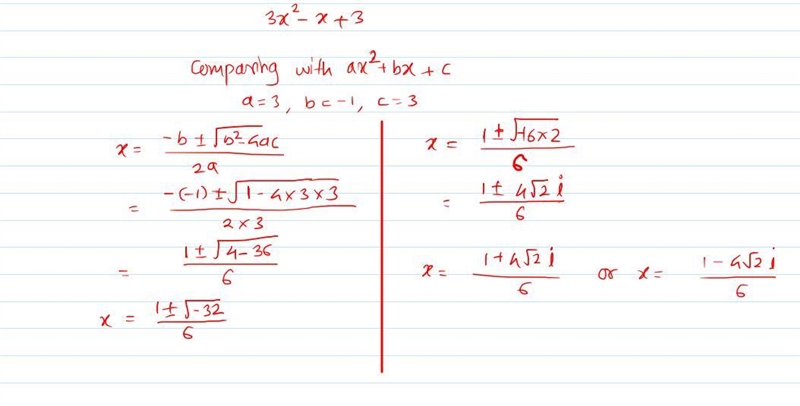 3x² - x + 3
Comparing with ax² + bx + c
a = 3, b = -1, c = 3
x = (-b ± √(b² - 4ac)) / 2a
= (-(-1) ± √(1 - 4 × 3 × 3)) / (2 × 3)
= (1 ± √(4 - 36)) / 6
x = (1 ± √(-32)) / 6
x = (1 ± √(-16 × 2)) / 6
= (1 ± 4√2 i) / 6
x = (1 + 4√2 i) / 6 or x = (1 - 4√2 i) / 6